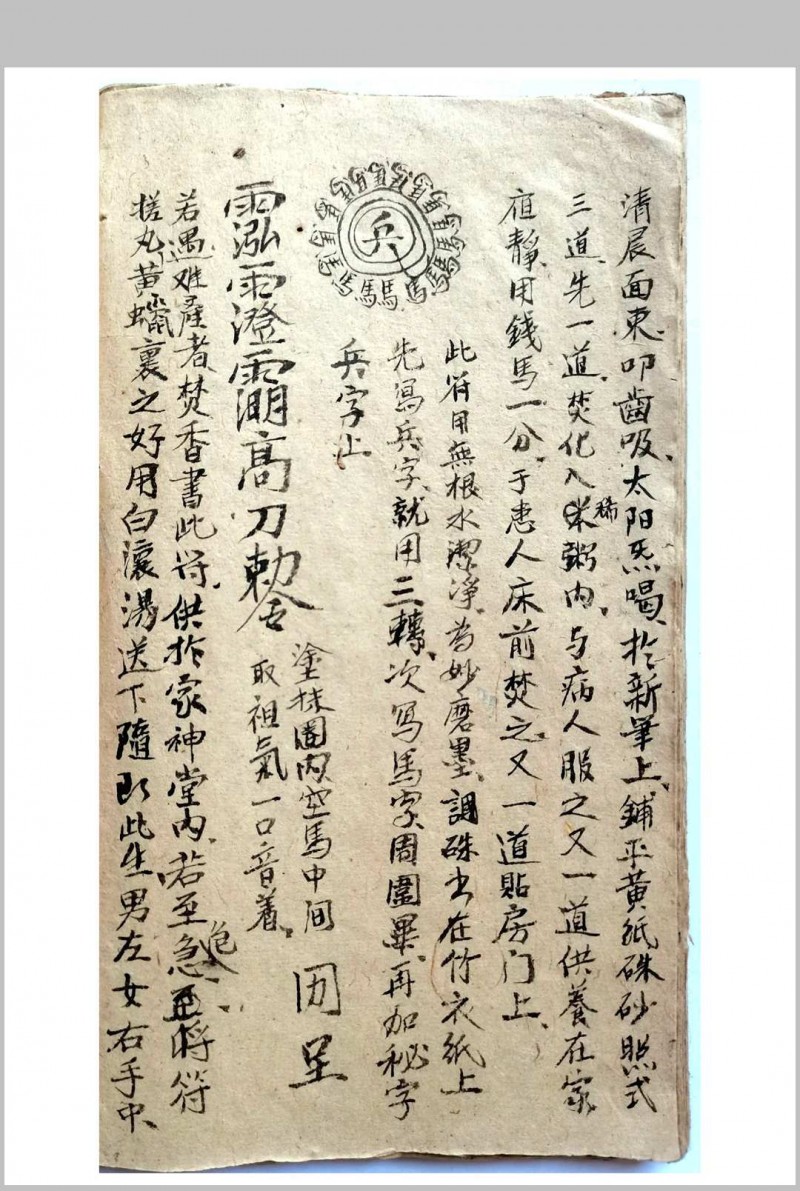 清晨面東叩齒吸太阳炁喝於新筆上鋪平黃紙硃砂照式
三道先一道焚化入稀粥内与病人服之又一道供養在家
宿靜用錢馬一分于患人床前焚之又一道貼房门上
此符用無根水潔淨為妙磨墨調硃书在竹衣紙上
先寫兵字就用三轉次寫馬字周圍畢再加秘字
兵字止
兵
馬馬馬馬馬
塗抹圈内空馬中间
取祖氣一口音着
高刀敕令
若遇难產者焚香書此符供於家神堂内若至危急將符
搓丸黃蠟裹之好用白滾湯送下隨即此生男左女右手中